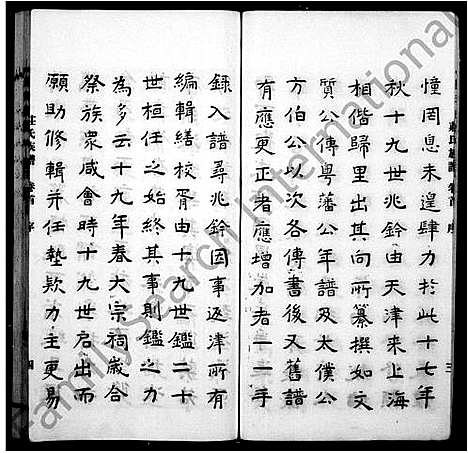 憧罔息未遑肆力於此十七年
秋十九世兆鈴由天津來上海
相偕歸里出其向所纂撰如文
質公傳粵藩公年譜及太僕公
方伯公以次各傳書後又舊譜
有應更正者應增加者一一手
錄入譜尋兆鈴因事返津所有
編輯繕校胥由十九世鑑二十
世桓任之始終其事則鑑之力
為多云十九年春大宗祠歲合
祭族眾咸會時十九世启出而
願助修輯并任墊欵力主更易
莊氏族譜 卷首 序
三
莊氏族譜 卷首 序
四
FamilySearch International